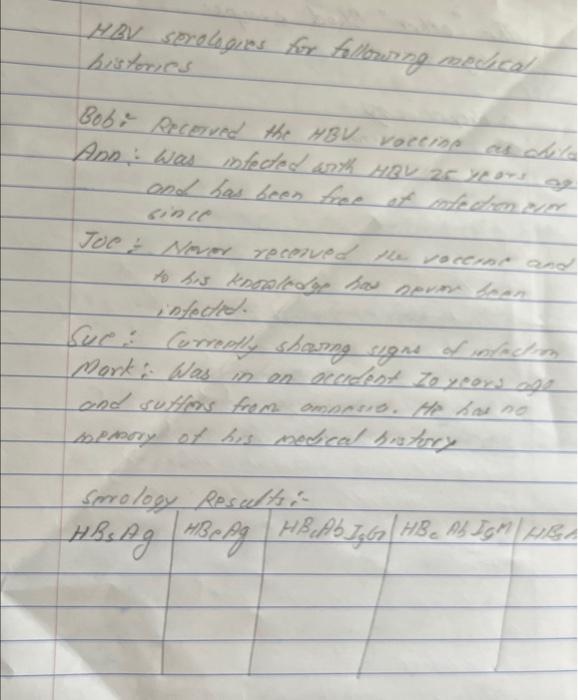 HBV serologies for following medical
histories
Bob:- Received the HBV vaccine as child
Ann:- Was infected with HBV 25 years ag
and has been free of infection ever
since
Joe:- Never received the vaccine and
to his knowledge has never been
infected.
Sue:- Currently showing signs of infection
Mark:- Was in an accident 20 years ago
and suffers from amnesia. He has no
memory of his medical history
Serology Results:-
HBsAg | HBeAg | HBcAb IgG | HBc Ab IgM | HBsA